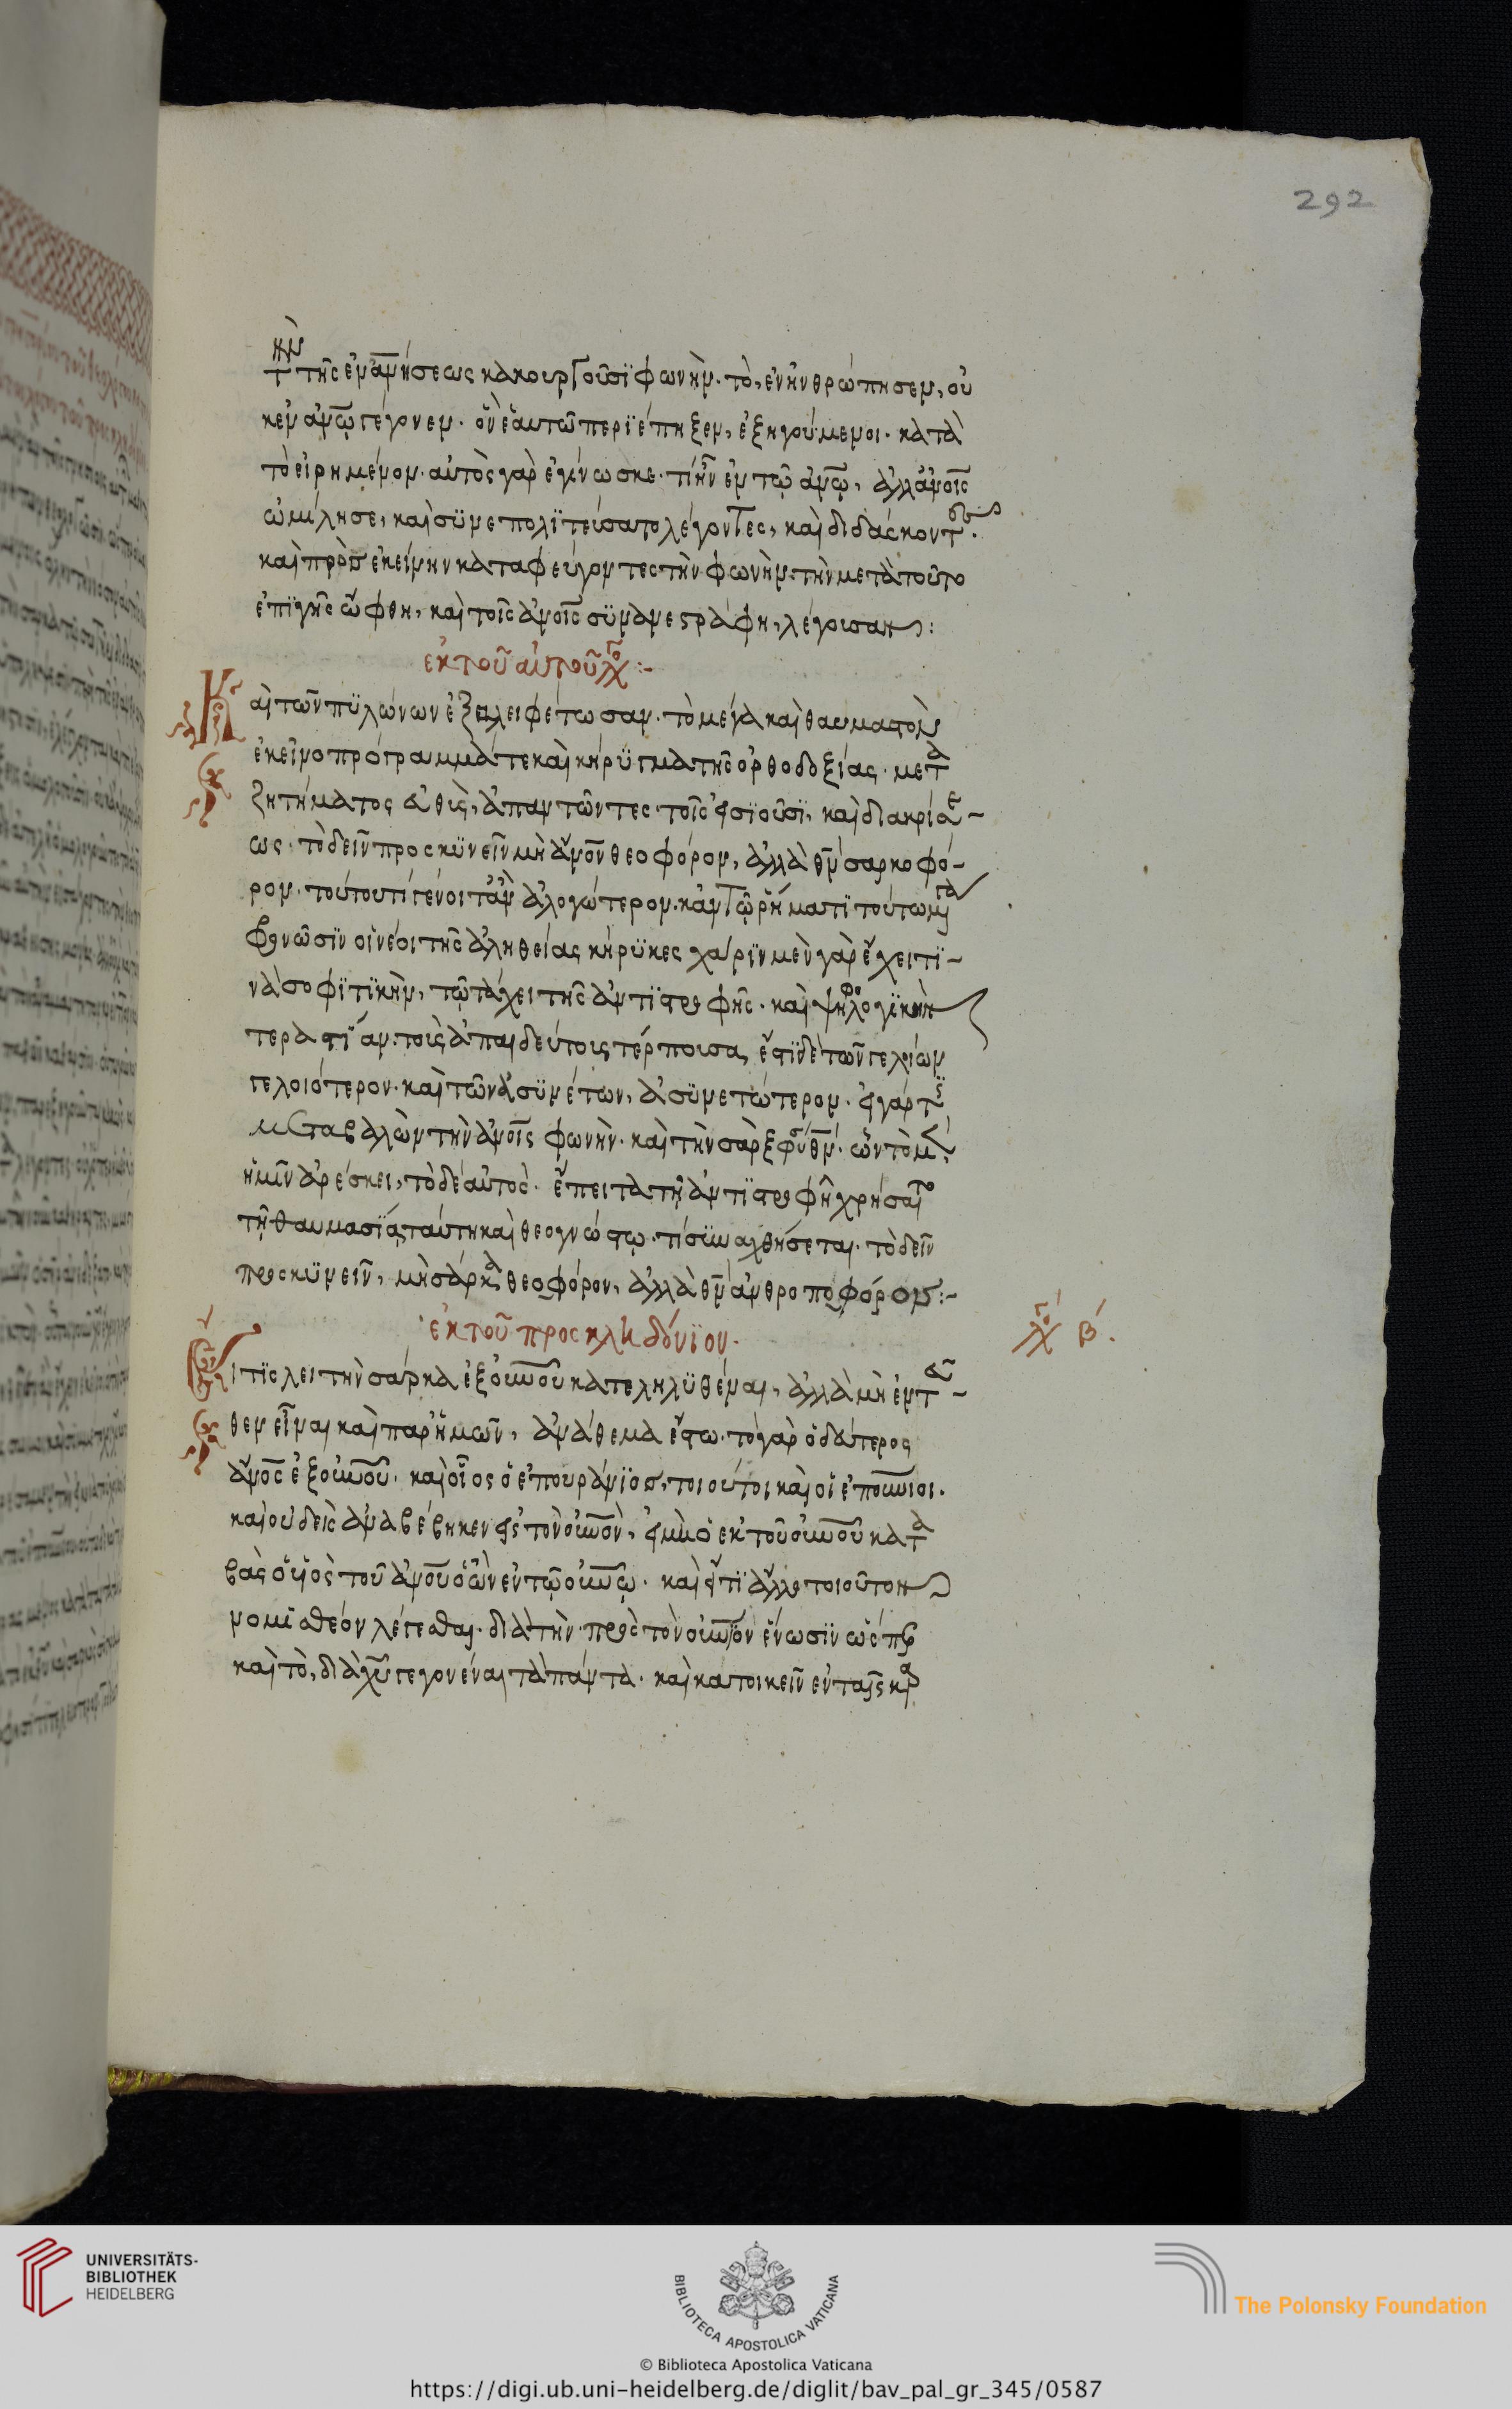 292
τὴν τῆς ἐνανήσεως κακουργοῦσϊ φωνὴν· τὸ, ἐνηνθρώπησεν, οὐ
κ ἐν ἀνω γέγονεν· ὃν ἑαυτῶ περϊέπηξεν, ἐξηγούμενοι· κατὰ
τὸ εἰρημένον· αὐτὸς γὰρ ἐγίνωσκε· τί ἦν ἐν τῶ ἀνω, ἀλλ' ἀνοις
ὡμίλησε, καὶ συνεπολϊτεύσατο λέγοντες, καὶ διδάσκοντες·
καὶ πρὸς ἐκείνην καταφεύγοντες τὴν φωνὴν· τὴν μετὰ τοῦτο
ἐπϊ γῆς ὤφθη, καὶ τοῖς ἀνοις συνανεστράφη, λέγουσαν:
ἐκ τοῦ αὐτοῦ λόγου:-
Καὶ τῶν πϋλώνων ἐξαλειφέτωσαν· τὸ μέγα καὶ θαυμαστὸν
ἐκεῖνο πρόγραμμά τε καὶ κήρϋγμα τῆς ὀρθοδοξίας· μετὰ
ζητήματος εὐθὺς, ἀπαντῶντες τοῖς εἰσϊοῦσϊ, καὶ διακρίσε-
ως· τὸ δεῖν προσκϋνεῖν μὴ ἄνον θεοφόρον, ἀλλὰ θν σαρκοφό-
ρον· τούτου τί γένοιτ' ἂν ἀλογώτερον· κἂν τῶ ῥήματϊ τούτω μέγα
φρονῶσϊν οἱ νέοι τῆς ἀληθείας κήρϋκες χάρϊν μὲν γὰρ ἔχει τϊ-
νὰ σοφϊστϊκὴν, τῶ τάχει τῆς ἀντϊστροφῆς· καὶ ψηφολογϊκὴν
τερατείαν· τοὺς ἀπαιδεύτους τέρπουσα, ἔστϊ δὲ τῶν γελοίων
γελοιότερον· καὶ τῶν ἀσϋνέτων, ἀσϋνετώτερον· εἰ γὰρ τις
μεταβαλὼν τὴν ἀνοις φωνὴν· καὶ τὴν σὰρξ φωνὴν θν· ὧν τὸ μὲν
ἡμῖν ἀρέσκει, τὸ δὲ αὐτοῖς· ἔπειτα τῆ ἀντϊστροφῆ χρήσαιτο
τῆ θαυμασϊα ταύτη καὶ θεογνώστω· τί συναχθήσεται· τὸ δεῖν
προσκϋνεῖν, μὴ σάρκα θεοφόρον, ἀλλὰ θν ἀνθροποφόρον:-
ἐκ τοῦ προς κληδόνϊον·
λόγου Β΄.
Εἴ τϊς λει τὴν σάρκα ἐξ οὐνοῦ κατεληλϋθέναι, ἀλλὰ μὴ ἐντεῦ-
θεν εἶναι καὶ παρ' ἡμῶν, ἀνάθεμα ἔστω· τὸ γὰρ ὁ δεύτερος
ἄνος ἐξ οὐνοῦ· καὶ οἷος ὁ ἐπουράνϊος, τοιοῦτοι καὶ οἱ ἐπουνιοι·
καὶ οὐδεὶς ἀναβέβηκεν εἰς τὸν οὐνὸν, εἰ μὴ ὁ ἐκ τοῦ οὐνοῦ κατα
βὰς ὁ ὑϊὸς τοῦ ἀνου ὁ ὢν ἐν τῶ οὐνῶ· καὶ εἴ τϊ ἄλλο τοιοῦτον
νομιστέον λέγεσθαι· διὰ τὴν πρὸς τὸν οὐνιον ἕνωσϊν ὥσπερ
καὶ τὸ, διὰ χυ γεγονέναι τὰ πάντα· καὶ κατοικεῖν ἐν ταῖς καρ
UNIVERSITÄTS-
BIBLIOTHEK
HEIDELBERG
BIBLIOTECA APOSTOLICA VATICANA
The Polonsky Foundation
© Biblioteca Apostolica Vaticana
https://digi.ub.uni-heidelberg.de/diglit/bav_pal_gr_345/0587